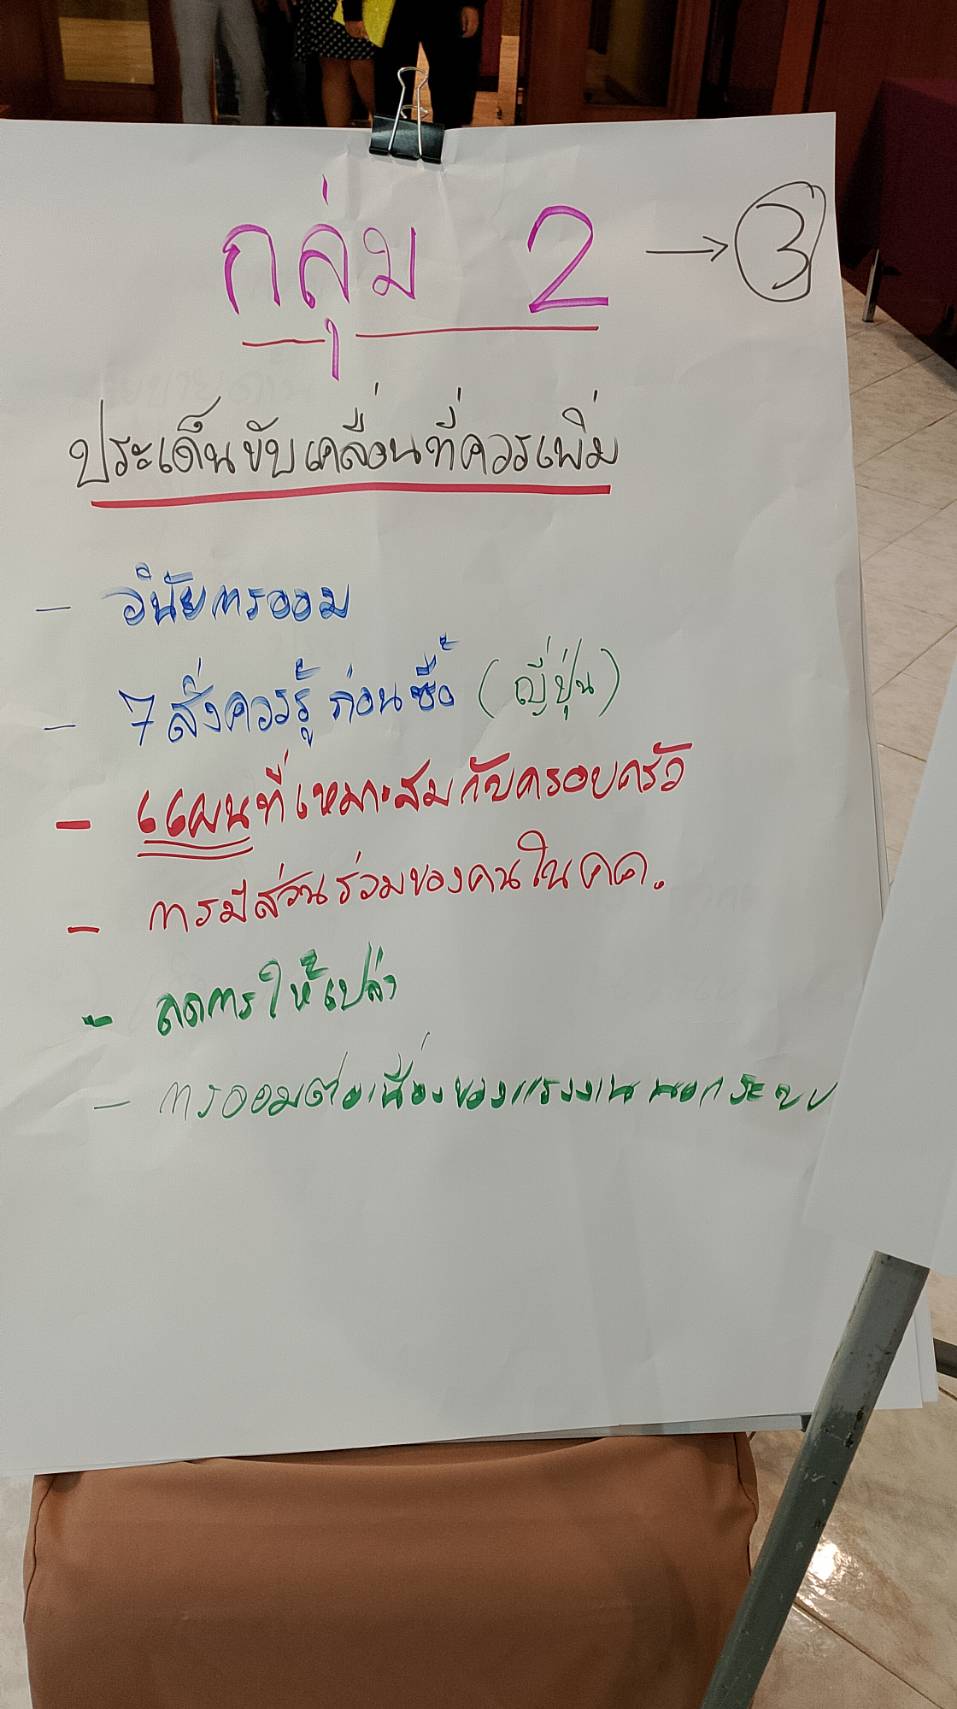 กลุ่ม 2 → 3
ประเด็นขับเคลื่อนที่ควรเพิ่ม
- วินัยการออม
- 7 สิ่งควรรู้ก่อนซื้อ (ญี่ปุ่น)
- แผนที่เหมาะสมกับครอบครัว
- การมีส่วนร่วมของคนใน คค.
- ลดการให้เปล่า
- การออมต่อเนื่องของแรงงานนอกระบบ